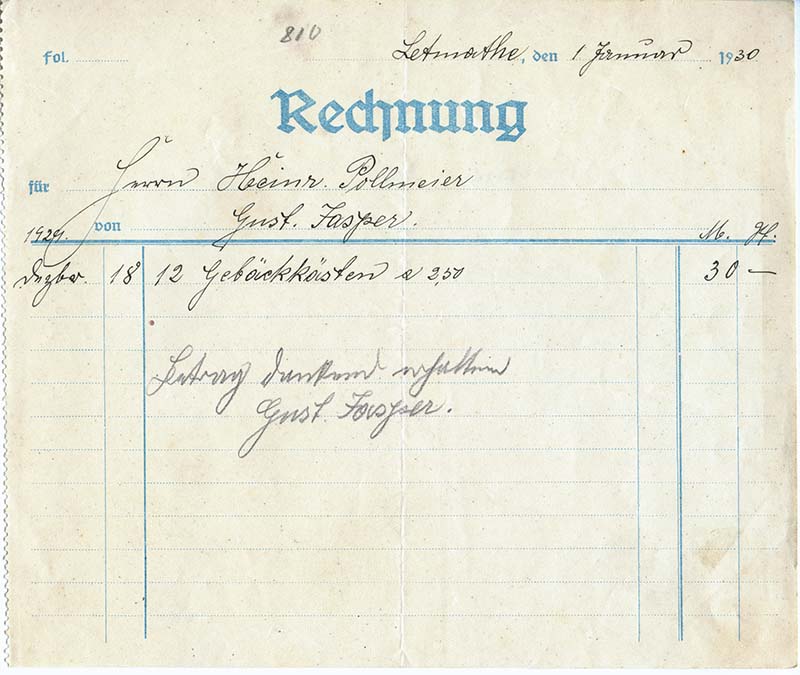 810
Fol. Letmathe, den 1 Januar 1930
Rechnung
für Herrn Heinr. Pollmeier
von Gust. Jasper.
1929. M. Pf.
Dezbr. 18 12 Gebäckkästen a 2,50 30 —
Betrag dankend erhalten
Gust. Jasper.